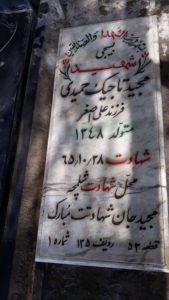 بسیجی
شهید
مجید تاجیک حیدری
فرزند علی اصغر
متولد ۱۳۴۸
شهادت ۶۵/۱۰/۲۸
محل شهادت شلمچه
مجید جان شهادتت مبارک
قطعه ۵۳ ردیف ۱۳۵ شماره ۱